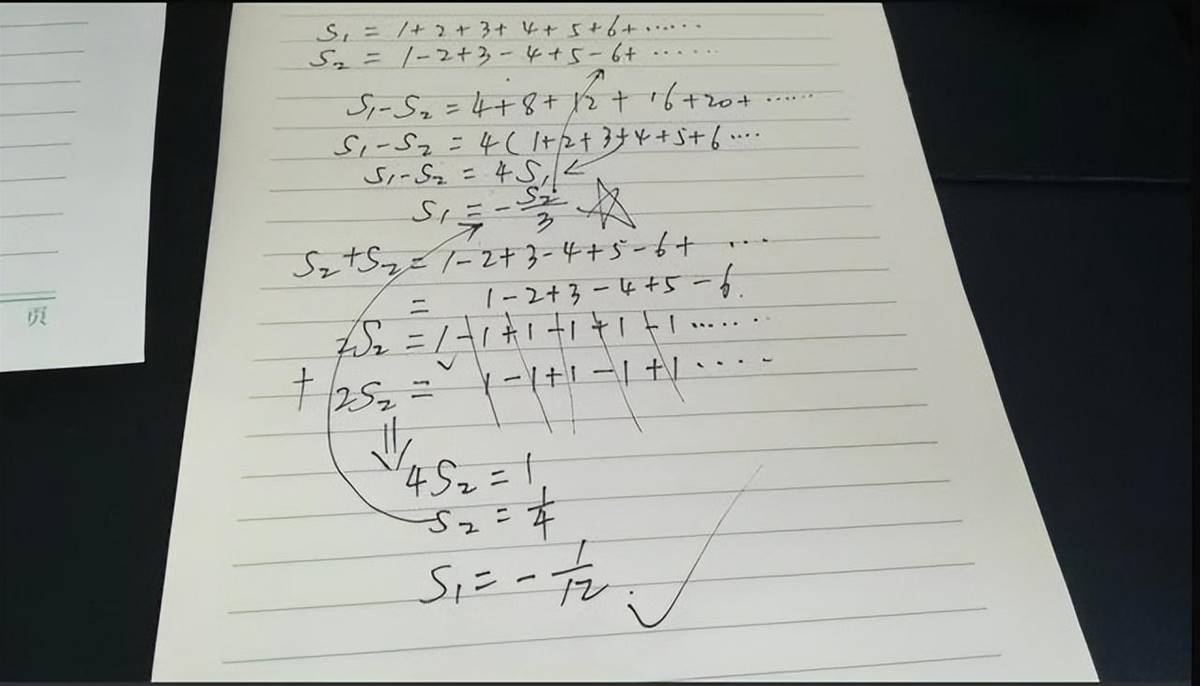 S₁ = 1+2+3+4+5+6+······
S₂ = 1-2+3-4+5-6+······
S₁-S₂ = 4+8+12+16+20+······
S₁-S₂ = 4(1+2+3+4+5+6····
S₁-S₂ = 4S₁
S₁ = -S₂/3
S₂+S₂ = 1-2+3-4+5-6+ ···
= 1-2+3-4+5-6.
2S₂ = 1-1+1-1+1-1······
+ 2S₂ = 1-1+1-1+1····
4S₂ = 1
S₂ = 1/4
S₁ = -1/12.
页